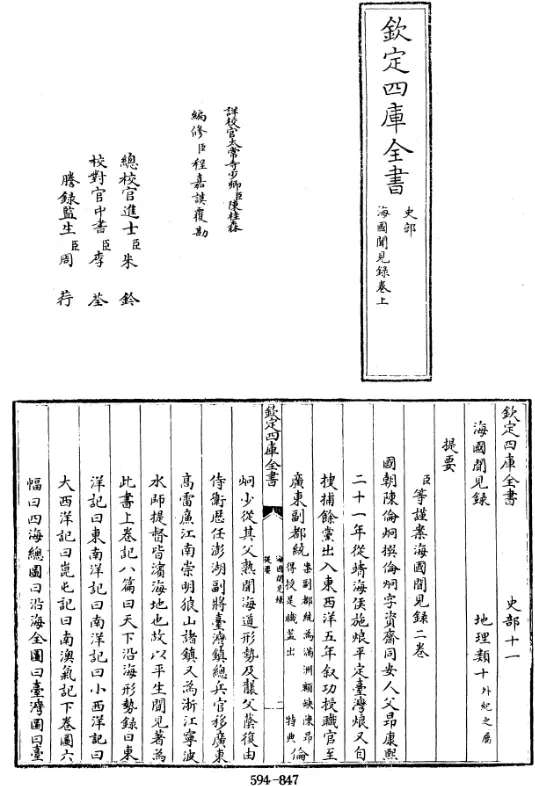 欽定四庫全書
史部
海國聞見錄卷上
詳校官太常寺少卿臣陳桂森
編修臣程嘉謨覆勘
總校官進士臣朱鈐
校對官中書臣李荃
謄錄監生臣周荇
欽定四庫全書
史部十一
海國聞見錄
地理類十外紀之屬
提要
臣等謹案海國聞見錄二卷
國朝陳倫炯撰倫炯字資齋同安人父昂康熙
二十一年從靖海侯施烺平定臺灣烺又自
搜捕餘黨出入東西洋五年叙功授職官至
廣東副都統案副都統為滿洲額缺陳昂得授是職蓋出特典倫
欽定四庫全書
海國聞見錄
提要
炯少從其父熟聞海道形勢及襲父蔭復由
侍衛歷任澎湖副將臺灣鎮總兵官移廣東
高雷廉江南崇明狼山諸鎮又為浙江寧波
水師提督皆濱海地也故以平生聞見著為
此書上卷記八篇曰天下沿海形勢錄曰東
洋記曰東南洋記曰南洋記曰小西洋記曰
大西洋記曰崑屯記曰南澳氣記下卷圖六
幅曰四海總圖曰沿海全圖曰臺灣圖曰臺
594-847